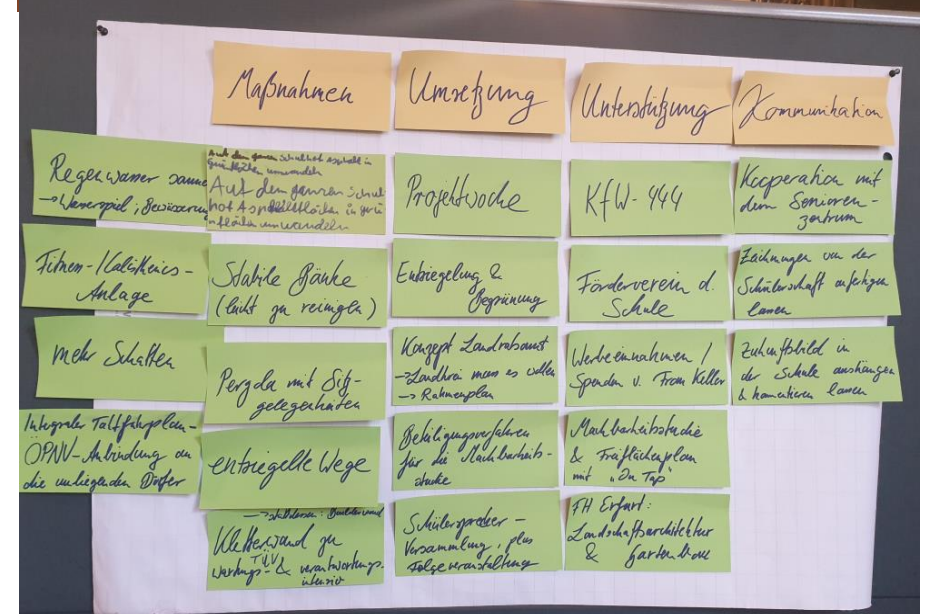 Maßnahmen
Umsetzung
Unterstützung
Kommunikation
Regenwasser
→ Wasserspiel, Bewässerung
Fitness-/Calisthenics-
Anlage
mehr Schatten
Integraler Taktfahrplan-
ÖPNV-Anbindung an
die umliegenden Dörfer
Auf dem ganzen Schulhof Asphalt in
Grünflächen umwandeln
Auf dem ganzen Schul
hof Asphaltflächen in grü
nflächen umwandeln
Stabile Bänke
(leicht zu reinigen)
Pergola mit Sitz-
gelegenheiten
entsiegelte Wege
Kletterwand zu
wartungs- & verantwortungs-
intensiv
TÜV
Projektwoche
Entsiegelung &
Begrünung
Konzept Landratsamt
→ Landkreis muss es wollen
→ Rahmenplan
Beteiligungsverfahren
für die Machbarkeits-
studie
Schülersprecher-
Versammlung, plus
Folgeveranstaltung
KfW-444
Förderverein d.
Schule
Werbeeinnahmen /
Spenden v. Frau Keller
Machbarkeitsstudie
& Freiflächenplan
mit
FH Erfurt:
Landschaftsarchitektur
& Gartenbau
Kooperation mit
dem Senioren-
zentrum
Zeichnungen von der
Schülerschaft anfertigen
lassen
Zukunftsbild in
der Schule aushängen
& kommentieren lassen